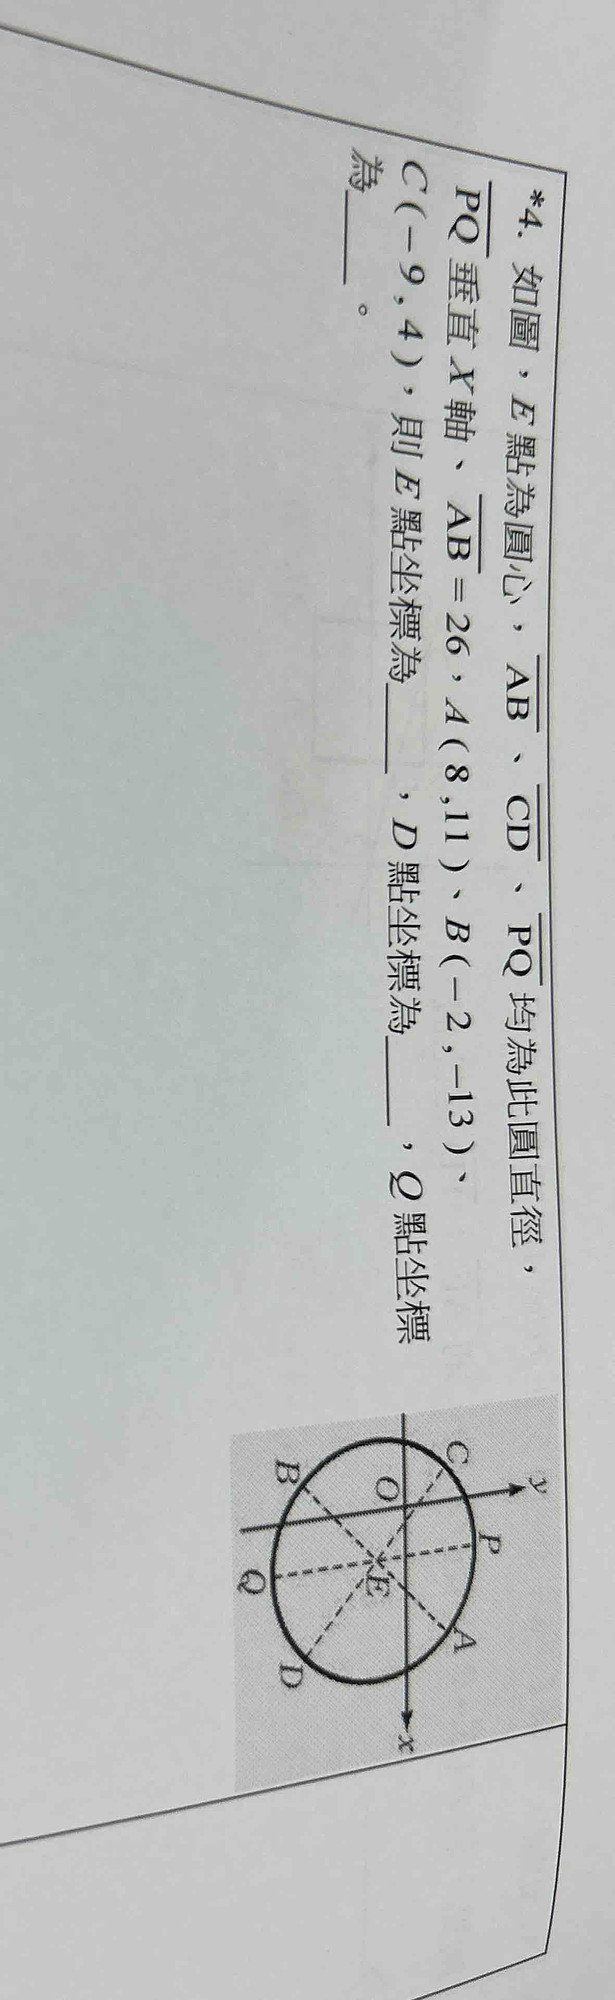 *4. 如圖，E點為圓心，AB、CD、PQ均為此圓直徑，
PQ垂直X軸、AB=26，A(8,11)、B(-2,-13)、
C(-9,4)，則E點坐標為____，D點坐標為____，Q點坐標
為____。
y
P
C
A
O
x
E
B
D
Q